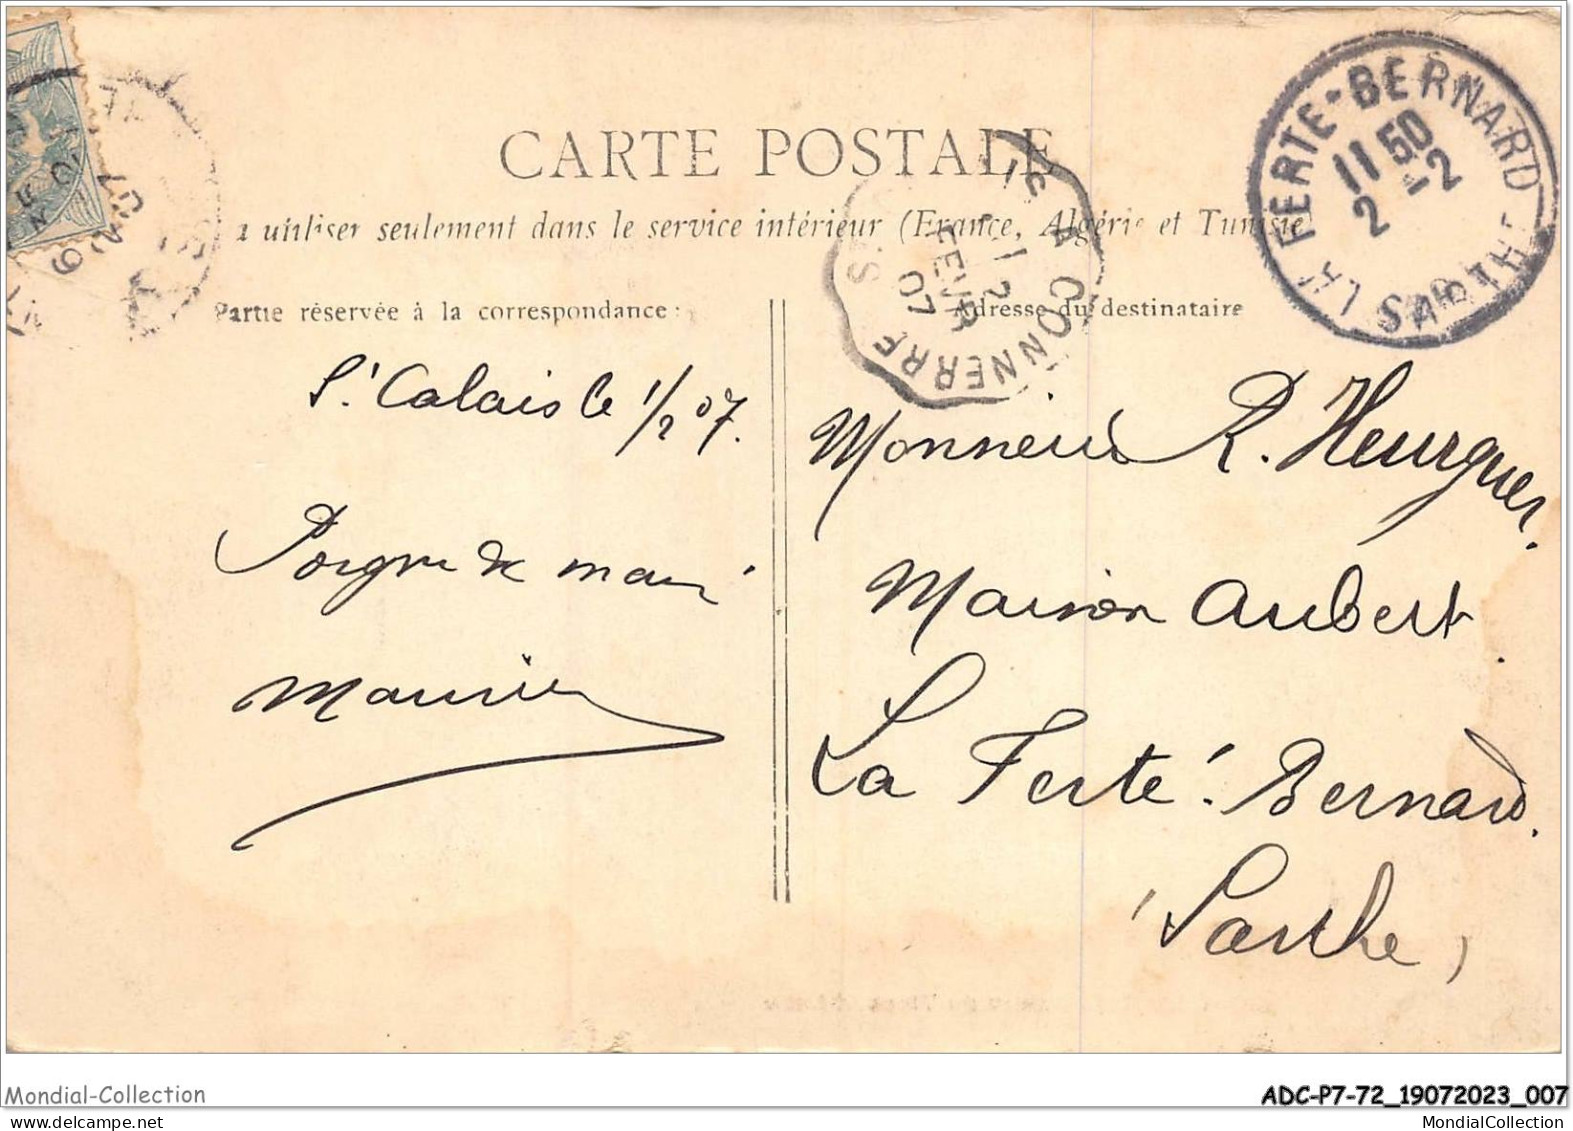 CARTE POSTALE
a utiliser seulement dans le service intérieur (France, Algérie et Tunisie
Partie réservée à la correspondance :
Adresse du destinataire
LA FERTE-BERNARD
11 50
2 -2
SARTHE
A CONNERRE
1
2
FEVR
07
St Calais le 1/2 07.
Poignée de main
Maurice
Monsieur R. Heurguer.
Maison Aubert.
La Ferté-Bernard.
(Sarthe)
Mondial-Collection
ADC-P7-72_19072023_007
MondialCollection